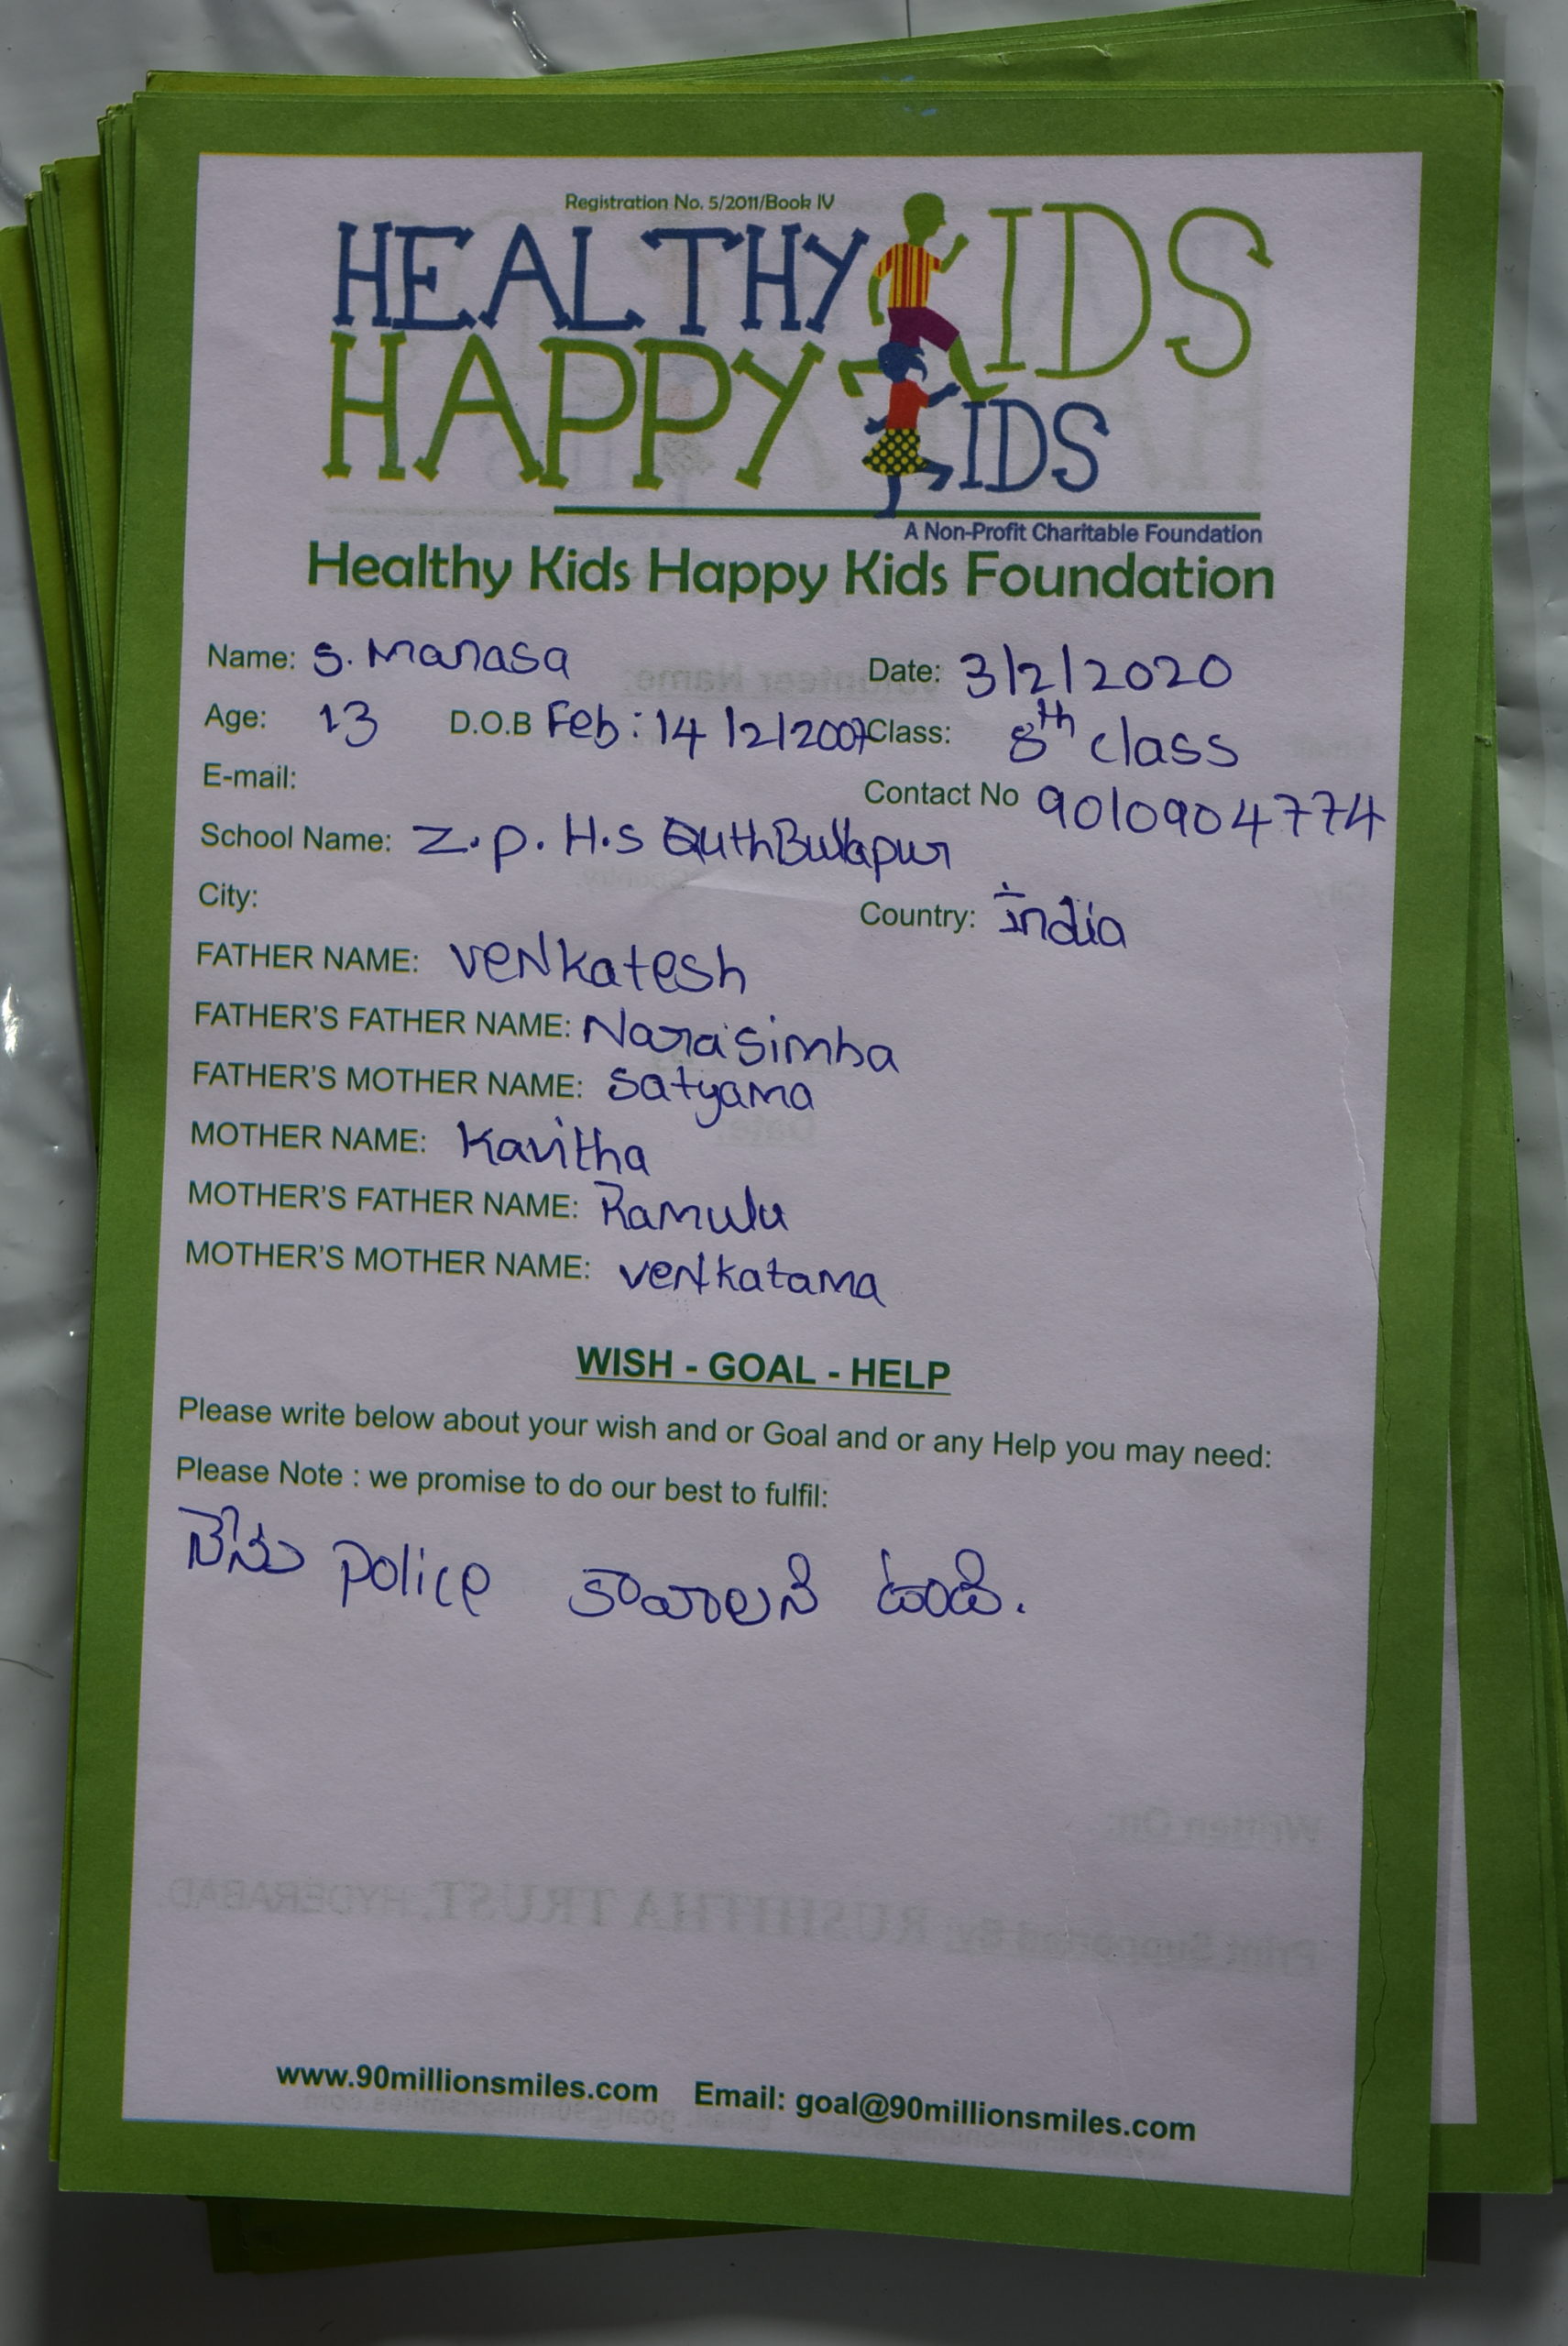 Registration No. 5/2011/Book IV
HEALTHY KIDS
HAPPY KIDS
A Non-Profit Charitable Foundation
Healthy Kids Happy Kids Foundation
Name: S. Manasa Date: 3/2/2020
Age: 13 D.O.B Feb: 14/2/2007 Class: 8th class
E-mail: Contact No 9010904774
School Name: Z.P. H.S QuthBullapur
City: Country: India
FATHER NAME: Venkatesh
FATHER'S FATHER NAME: Narasimha
FATHER'S MOTHER NAME: Satyama
MOTHER NAME: Kavitha
MOTHER'S FATHER NAME: Ramulu
MOTHER'S MOTHER NAME: Venkatama
WISH - GOAL - HELP
Please write below about your wish and or Goal and or any Help you may need:
Please Note : we promise to do our best to fulfil:
నేను police కావాలని ఉంది.
www.90millionsmiles.com Email: goal@90millionsmiles.com